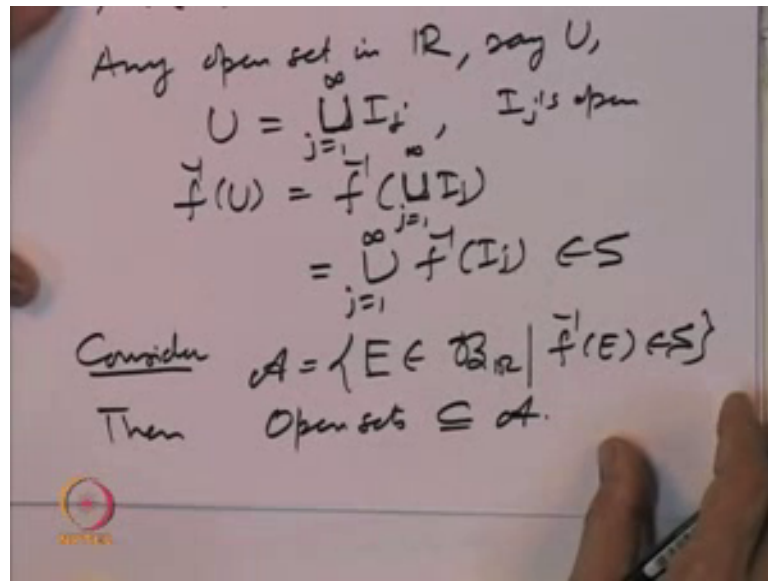 Any open set in ℝ, say U,
U = ⊔_{j=1}^{∞} I_j, I_j's open
f^{-1}(U) = f^{-1}(⊔_{j=1}^{∞} I_j)
= ⋃_{j=1}^{∞} f^{-1}(I_j) ∈ S
Consider 𝒜 = {E ∈ ℬ_ℝ | f^{-1}(E) ∈ S}
Then Open sets ⊆ 𝒜.
NPTEL